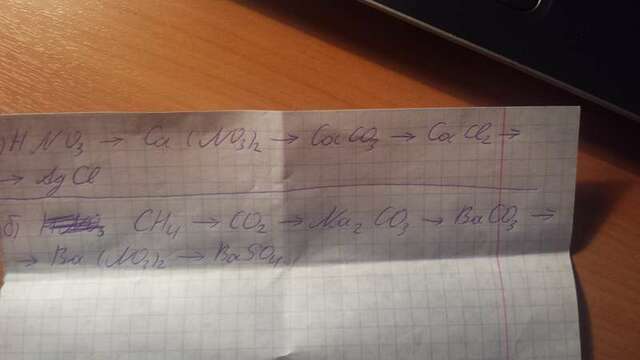 ) HNO3 → Ca(NO3)2 → CaCO3 → CaCl2 →
→ AgCl
б) CH4 → CO2 → Na2CO3 → BaCO3 →
→ Ba(NO3)2 → BaSO4